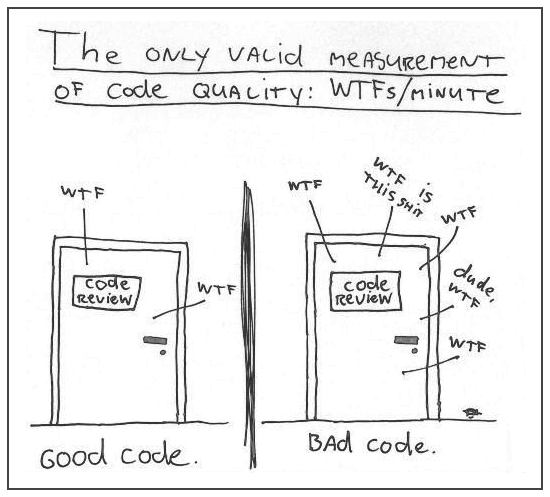 The only valid measurement
of code quality: WTFs/minute
WTF
code
review
WTF
Good code.
WTF
WTF is
this shit
WTF
code
review
dude,
WTF
WTF
Bad code.